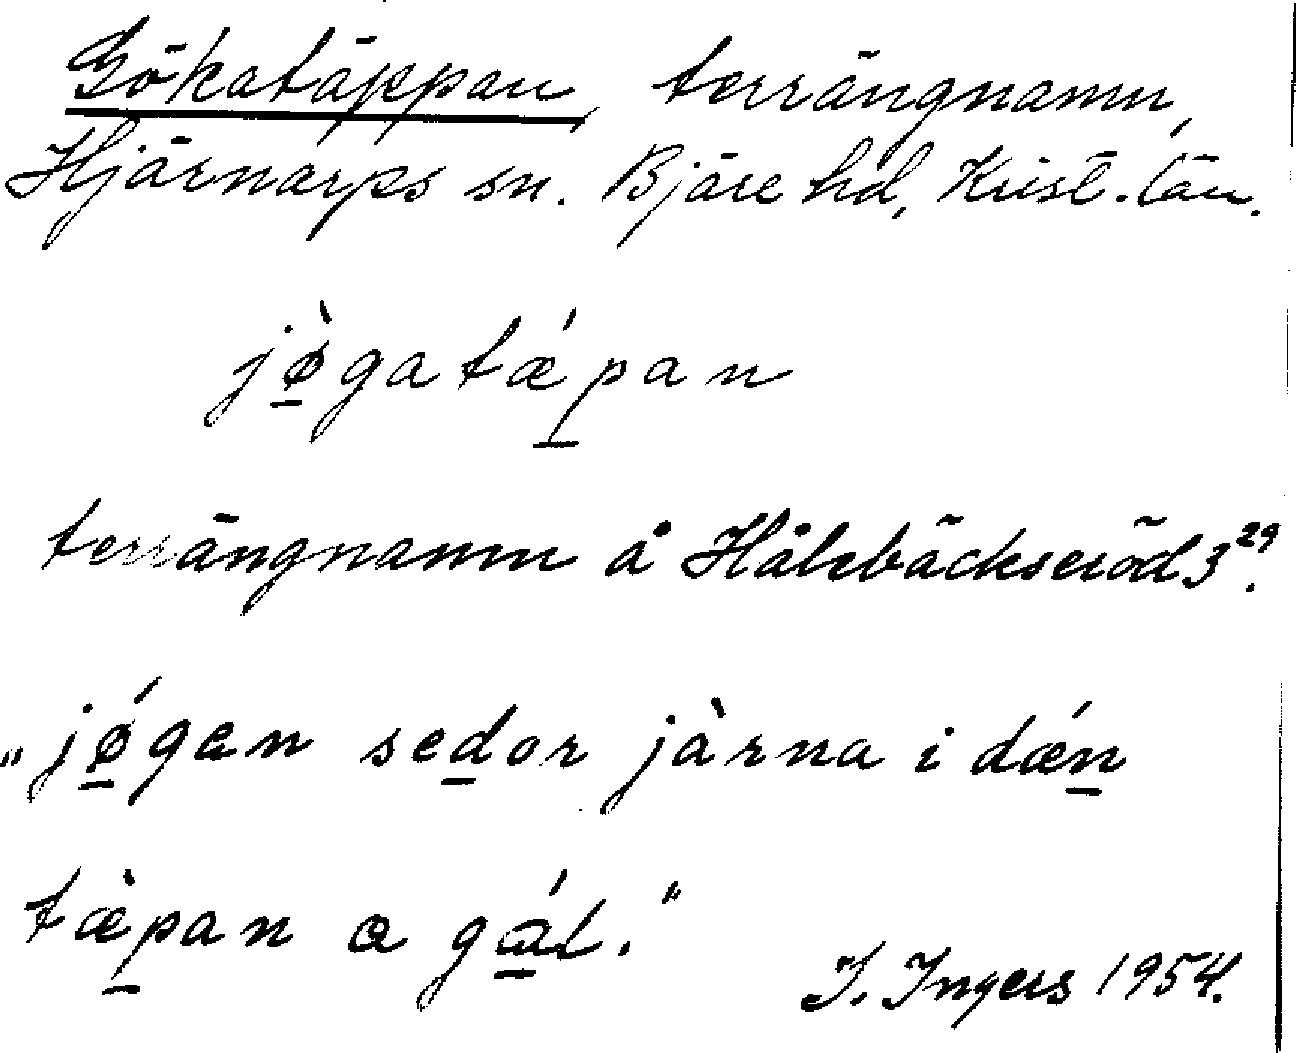 Gökatäppan, terrängnamn,
Hjärnarps sn. Bjäre hd, Krist. län.
jø̱̀gatǽ̱pan
terrängnamn å Hålebäckseröd 3²⁹.
"jǿ̱gan seḏor jàrna i dǽṉ
tæ̱̀pan a gá̱l."
I. Ingers 1954.